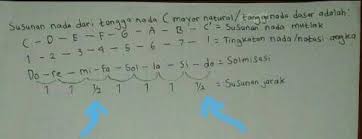 Susunan nada dari tangga nada C mayor natural/tangganada dasar adalah:
C - D - E - F - G - A - B - C' = Susunan nada mutlak
1 - 2 - 3 - 4 - 5 - 6 - 7 - 1 = Tingkatan nada/notasi angka
Do - re - mi - fa - Sol - la - si - do = Solmisasi
1 1 ½ 1 1 1 ½ = Susunan jarak